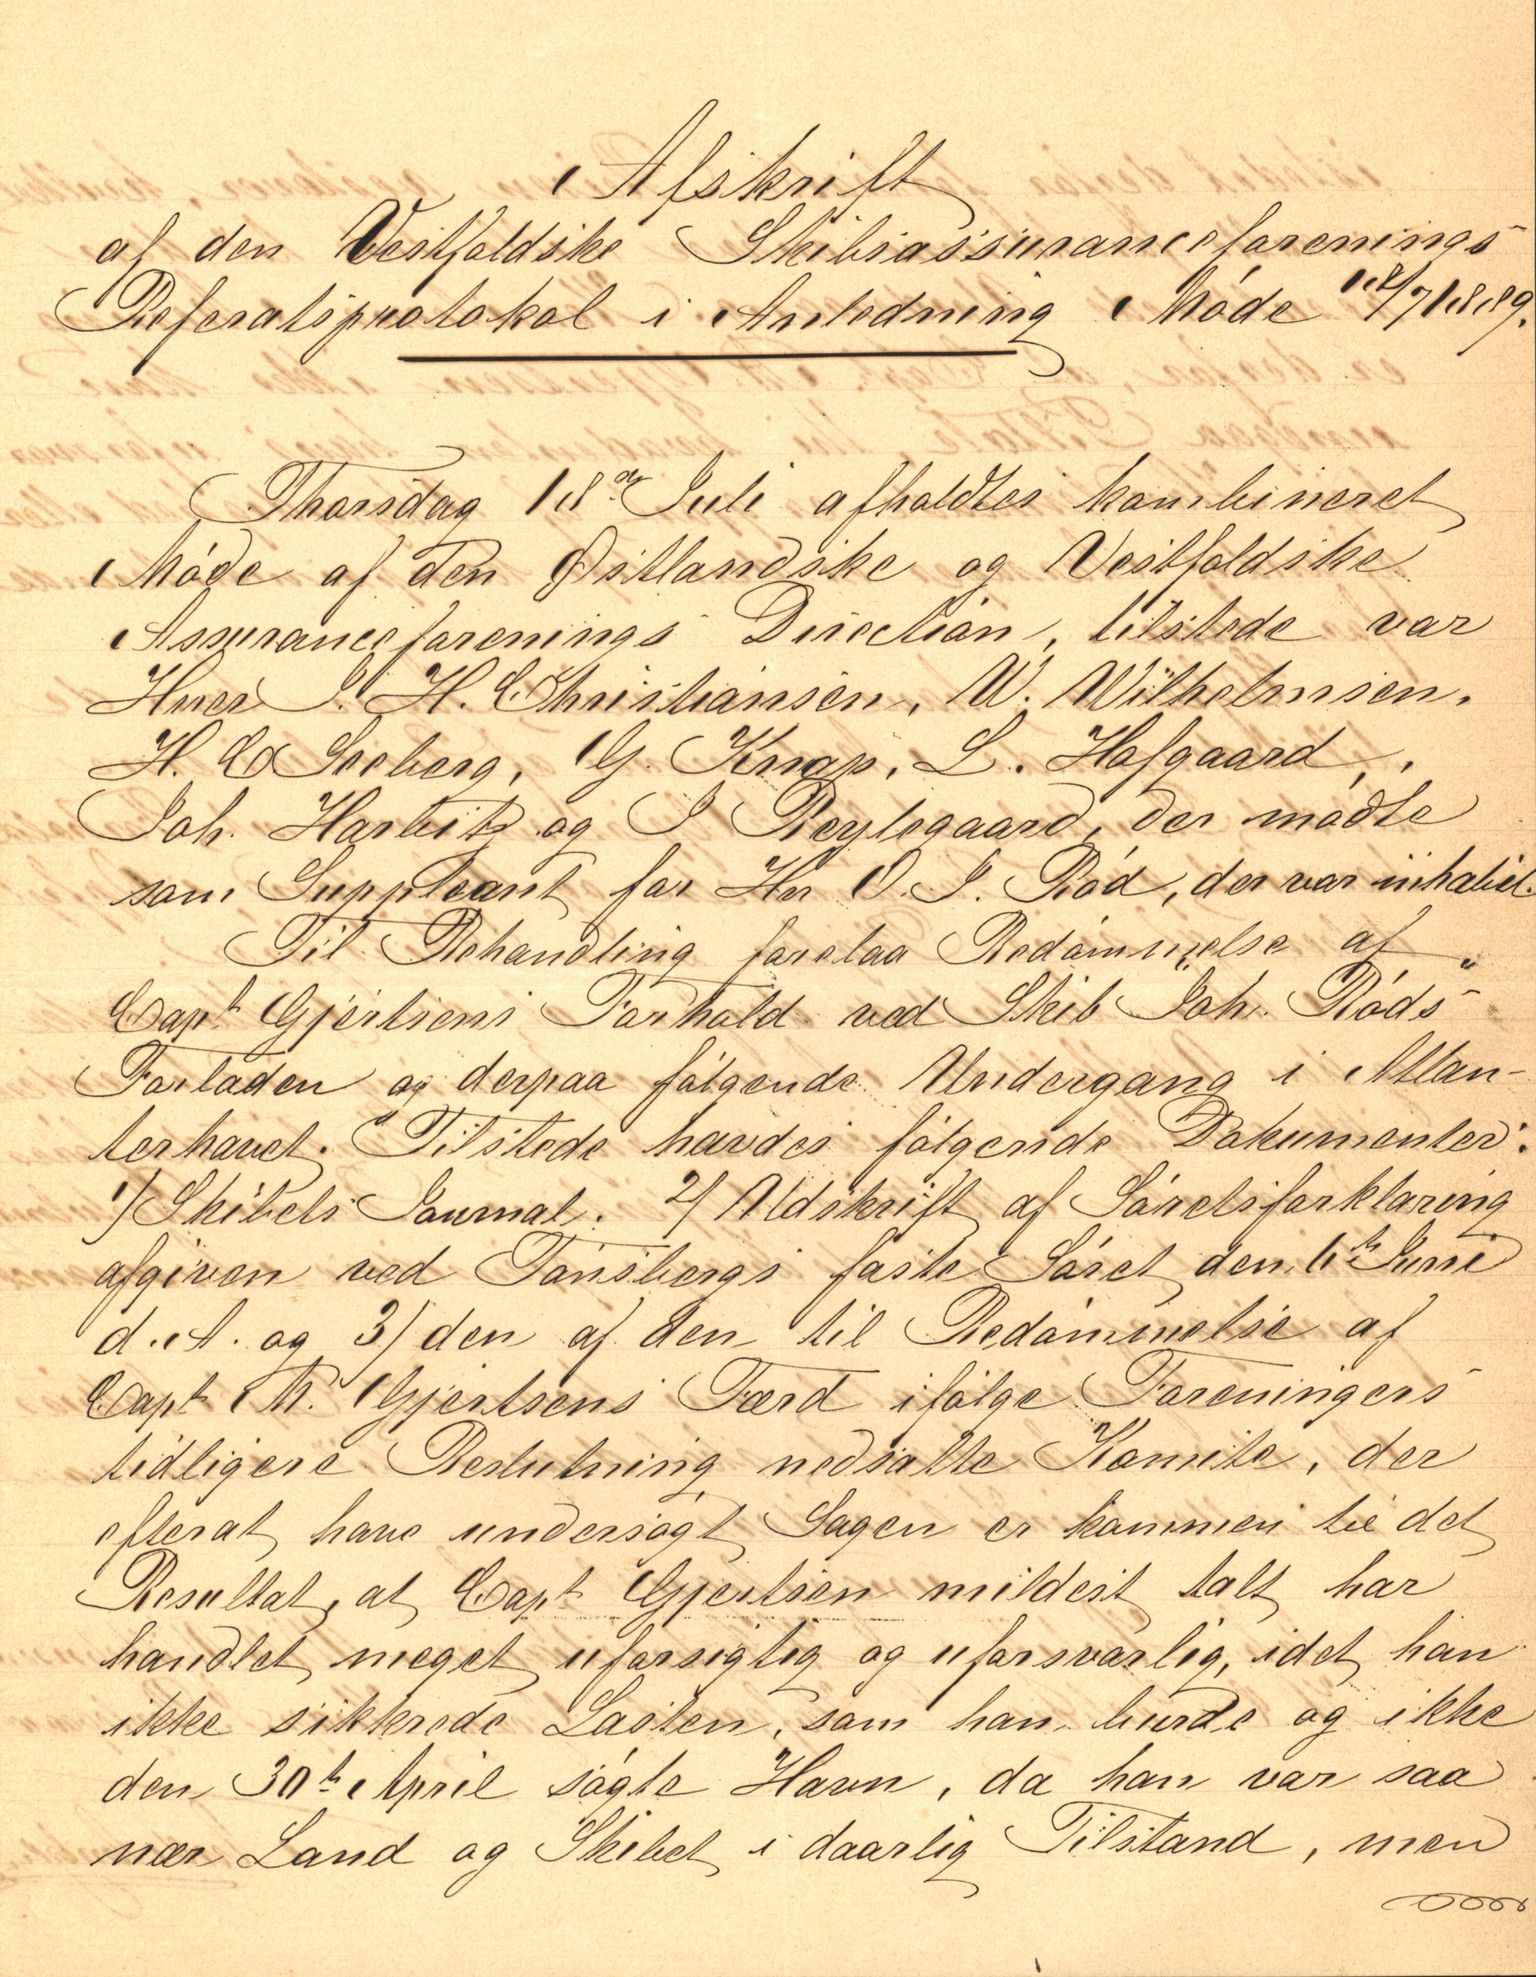 Afskrift
af den Vestfoldske Skibsassuranceforenings
Referatsprotokol i Anledning Möde 18/7 1889.
Thorsdag 18de Juli afholdtes kombineret
Möde af den Østlandske og Vestfoldske
Assuranceforenings Direction, tilstede var
Hrrer J. H. Christiansen, W. Wilhelmsen,
H. E. Seeberg, G. Knap, L. Hafgaard,
Joh. Harbitz og J. Reylegaard, der mödte
som Suppleant for Hr O. J. Röd, der var inhabil.
Til Behandling forelaa Bedömmelse af
Capt Gjertsens Forhold ved Skib "Joh. Röds"
Forladen og derpaa fölgende Undergang i Atlan-
terhavet. Tilstede havdes fölgende Dokumenter:
1) Skibets Journal. 2) Udskrift af Söretsforklaring
afgiven ved Tönsbergs faste Söret den 6te Juni
d. A. og 3) den af den til Bedömmelse af
Capt M. Gjertsens Færd ifölge Foreningers
tidligere Beslutning nedsatte Komite, der
efterat have undersögt Sagen er kommen til det
Resultat, at Capt Gjertsen mildest talt har
handlet meget uforsigtig og uforsvarlig, idet han
ikke sikkrede Lasten, som han burde og ikke
den 30te April sögte Havn, da han var saa
nær Land og Skibet i daarlig Tilstand, men